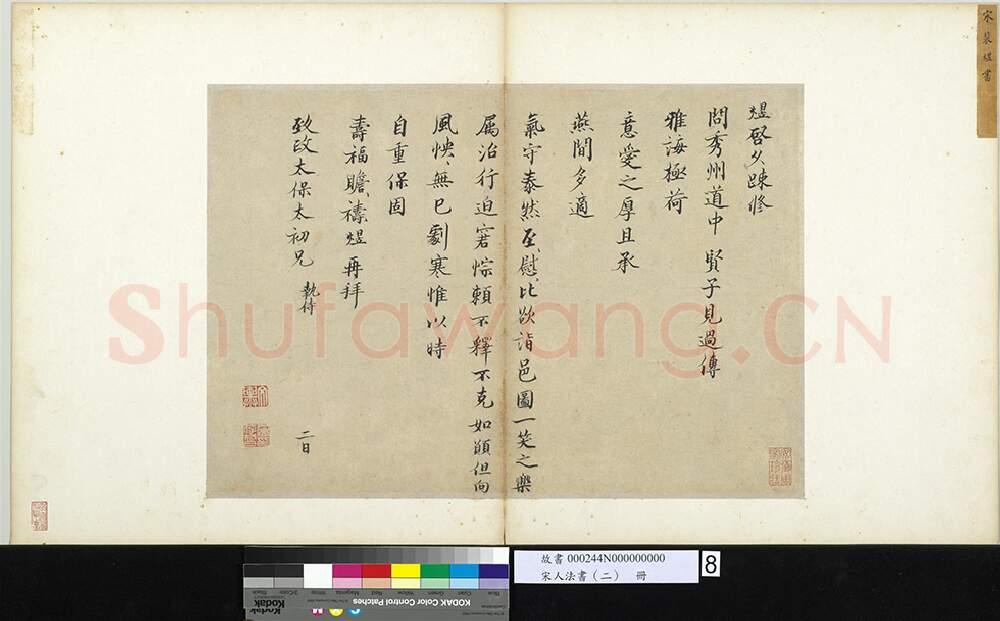 宋裴煜書
煜啓久疎修
問秀州道中賢子見過傳
雅誨極荷
意愛之厚且承
燕閒多適
氣守泰然至慰比欲詣邑圖一笑之樂
属治行迫窘悰賴不釋不克如願但向
風怏無已劇寒惟以時
自重保固
壽福瞻禱煜再拜
致政太保太初兄 執侍
二日
Shufawang.CN
故書 000244N000000000
宋人法書(二) 冊
8
KODAK Color Control Patches
Kodak
Blue
Cyan
Green
Yellow
Red
Magenta
White
3/Color
Black